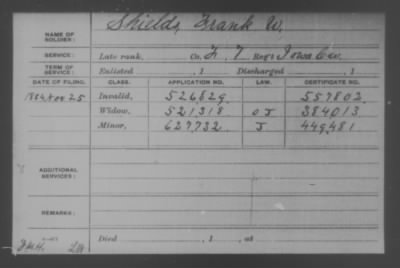 NAME OF SOLDIER: Shields, Frank W.
SERVICE: Late rank, Co. F, 7 Reg't Iowa Cav.
TERM OF SERVICE: Enlisted , 1 Discharged , 1
DATE OF FILING. CLASS. APPLICATION NO. LAW. CERTIFICATE NO.
1884 Nov 25 Invalid, 526829 557802
Widow, 521318 384013
Minor, 627732 449481
ADDITIONAL SERVICES:
REMARKS:
Died , 1 , at